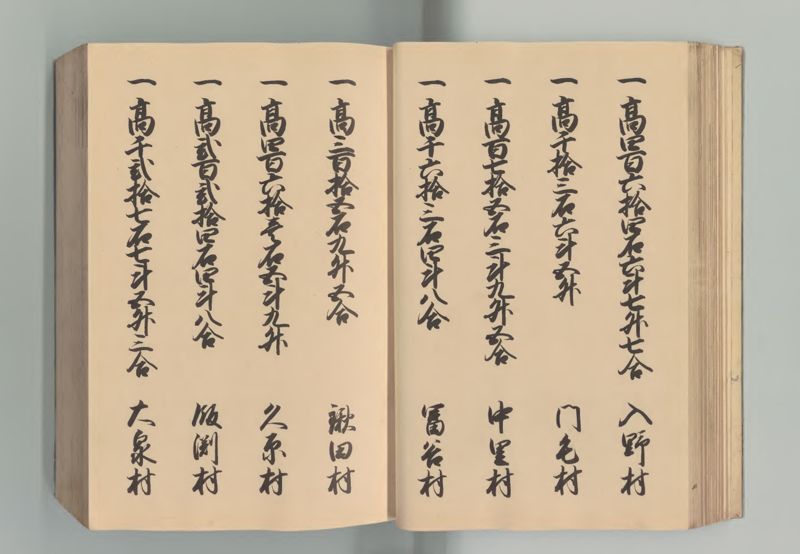 一 高四百六拾四石六斗七升七合 入野村
一 高千拾三石六斗五升 門毛村
一 高百七拾五石三斗九升五合 中里村
一 高千六拾三石四斗八合 冨谷村
一 高三百拾五石九升五合 鍬田村
一 高四百六拾壱石五斗九升 久原村
一 高弐百弐拾四石四斗八合 飯渕村
一 高千弐拾七石七斗五升三合 大泉村